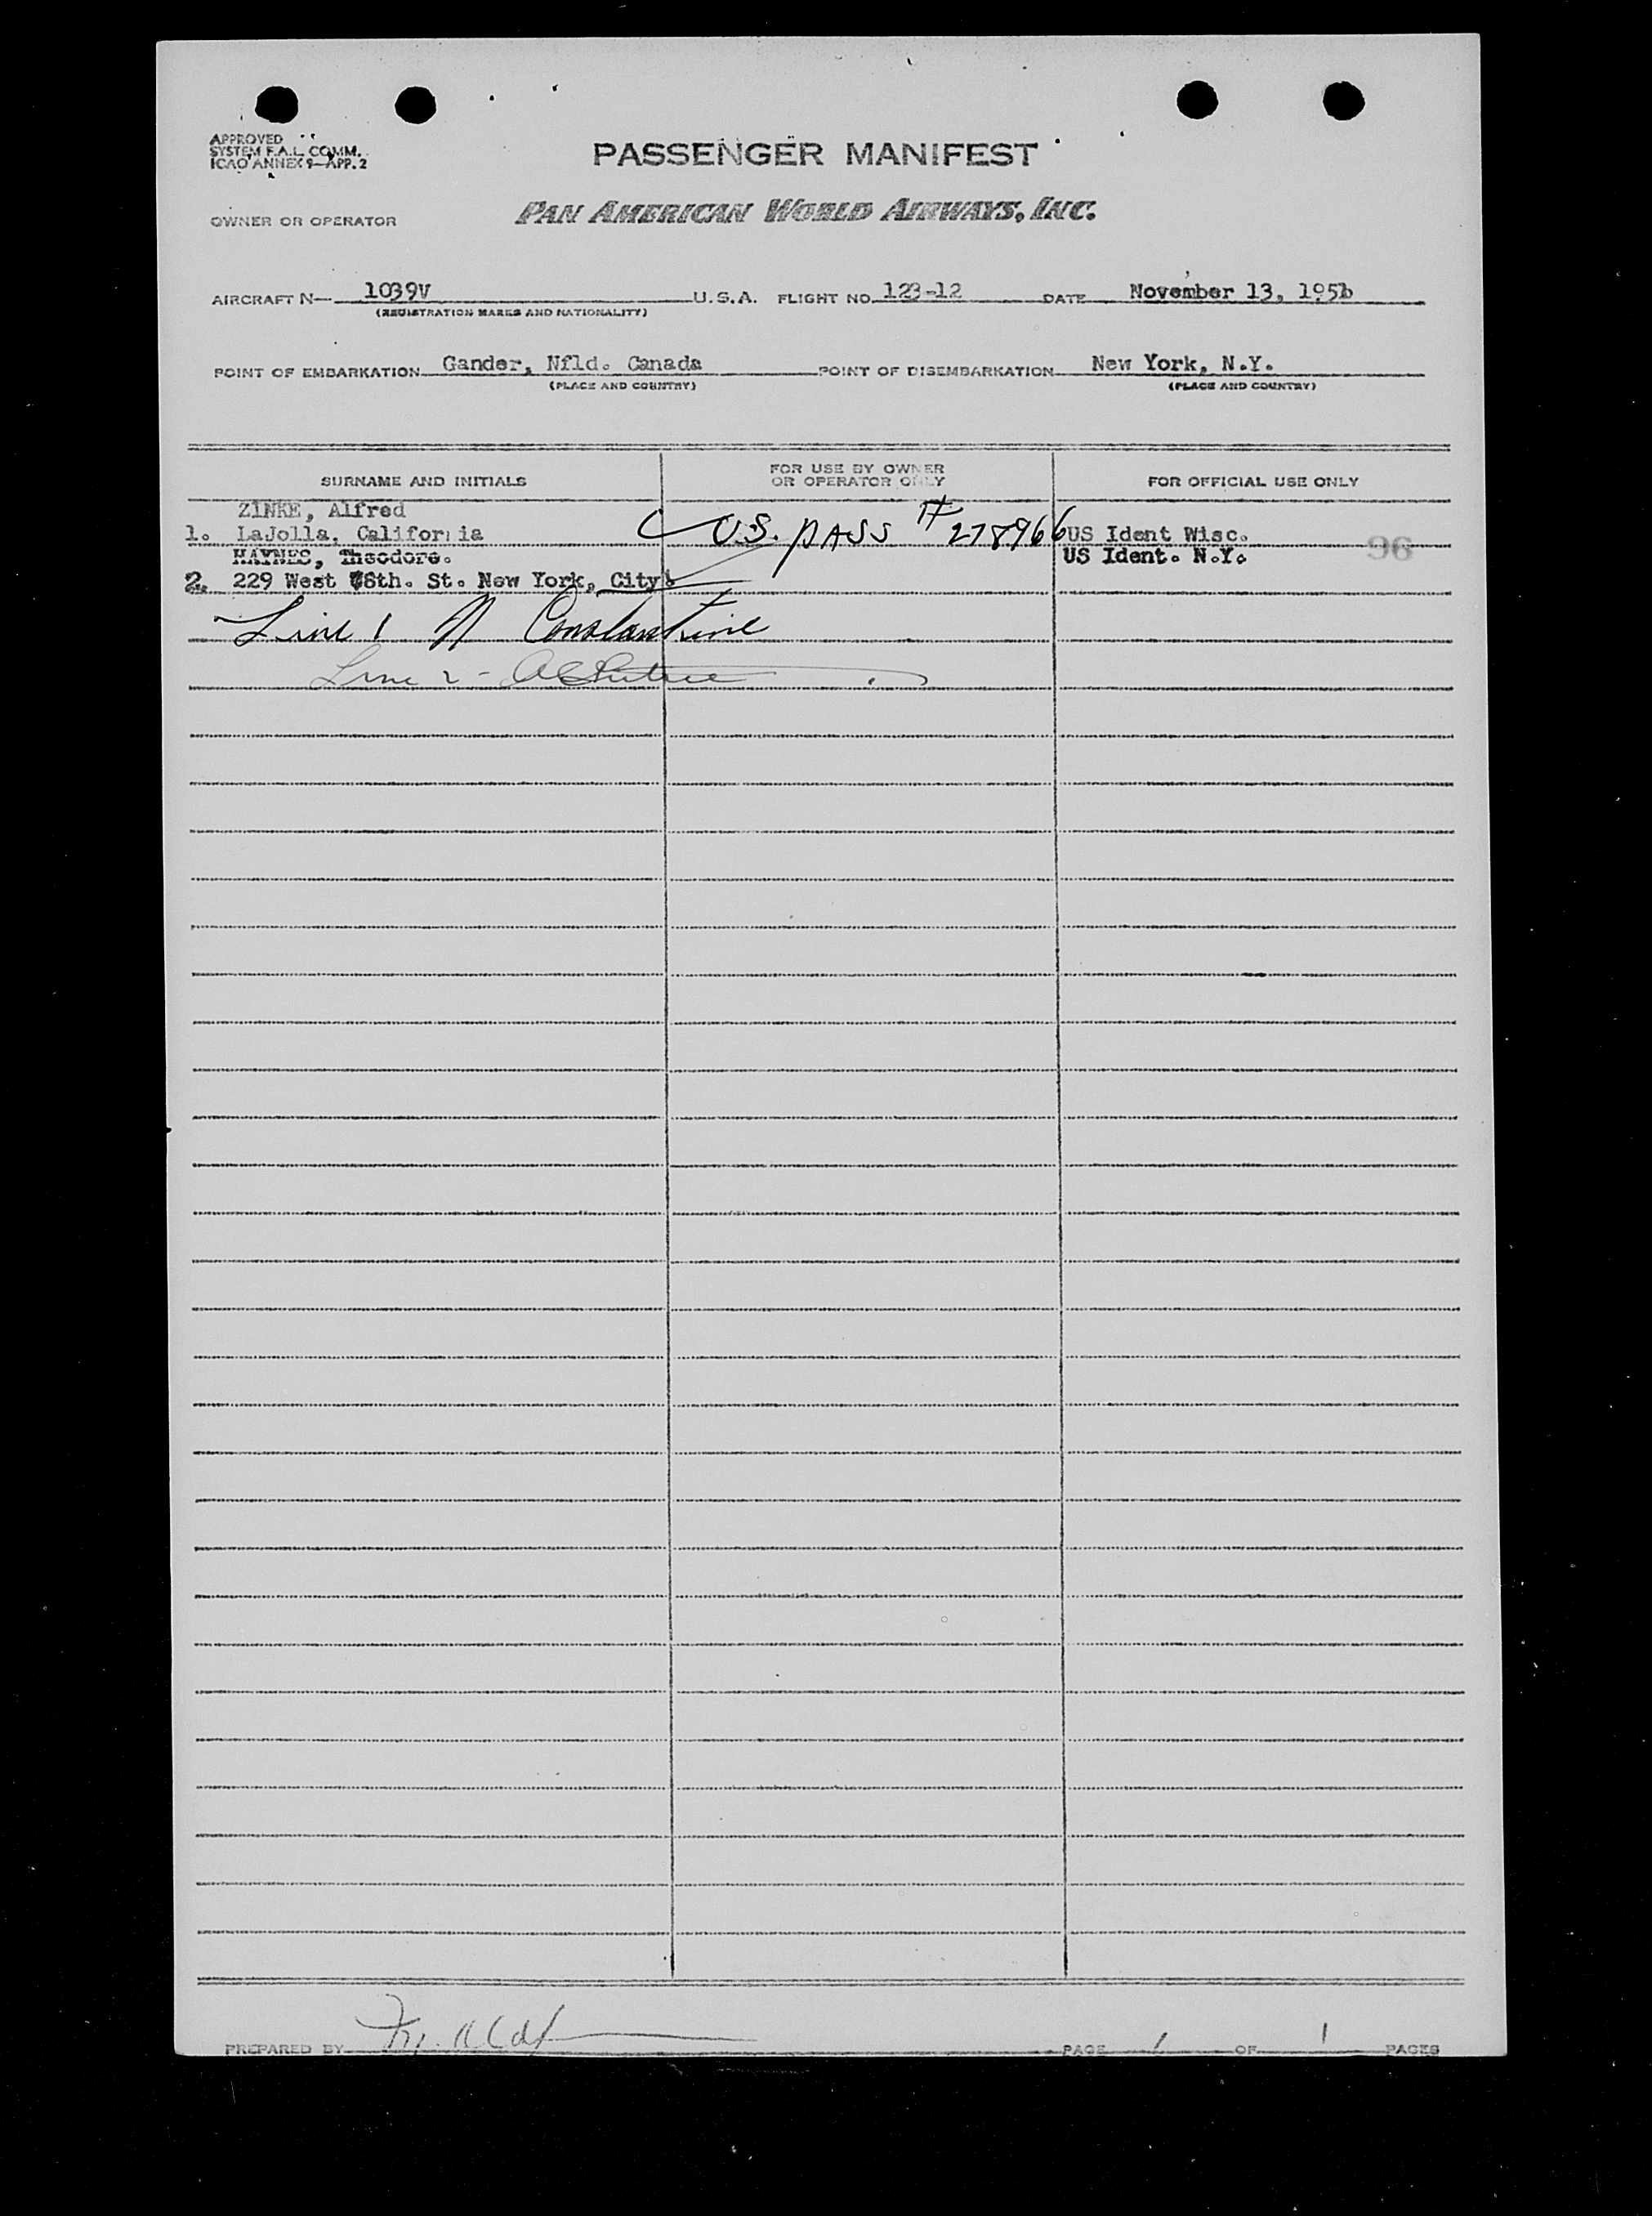 APPROVED
SYSTEM F.A.L. COMM.
ICAO ANNEX 9—APP. 2
PASSENGER MANIFEST
OWNER OR OPERATOR PAN AMERICAN WORLD AIRWAYS, INC.
AIRCRAFT N— 1039V U.S.A. FLIGHT NO. 123-12 DATE November 13, 195
(REGISTRATION MARKS AND NATIONALITY)
POINT OF EMBARKATION Gander, Nfld. Canada POINT OF DISEMBARKATION New York, N.Y.
(PLACE AND COUNTRY) (PLACE AND COUNTRY)
SURNAME AND INITIALS FOR USE BY OWNER OR OPERATOR ONLY FOR OFFICIAL USE ONLY
ZINKE, Alfred
1. LaJolla, California U.S. PASS # 278966 US Ident Wisc.
HAYNES, Theodore. US Ident. N.Y. 96
2. 229 West 78th. St. New York, City
Line 1 N Constantine
Line 2 -
PREPARED BY PAGE 1 OF 1 PAGES